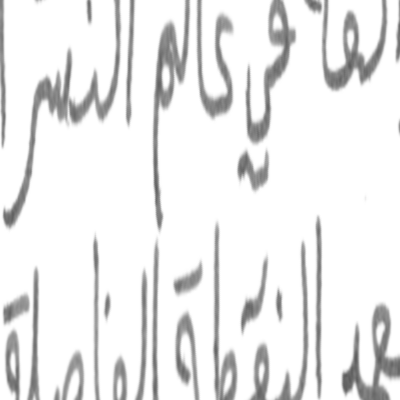 في عالم النشر
النقطة الفاصلة